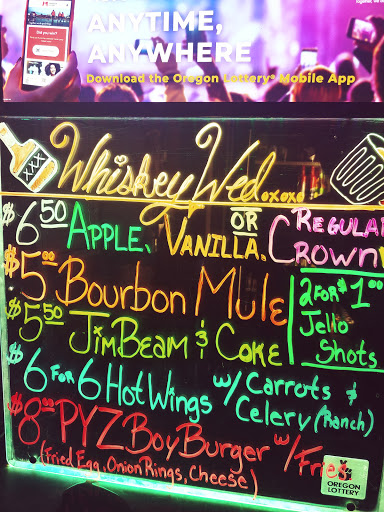 Did you win?
ANYTIME,
ANYWHERE
Download the Oregon Lottery® Mobile App
XXX
Whiskey Wed.oxoxo
$6.50 APPLE, VANILLA, OR REGULAR CROWN
$5.00 Bourbon Mule
$5.50 JimBeam & Coke
2 FOR $1.00
Jello
Shots
$6 FOR 6 Hot Wings w/ Carrots &
Celery (Ranch)
$8.00 PYZ Boy Burger w/ Fries
(Fried Egg, Onion Rings, Cheese)
OREGON
LOTTERY